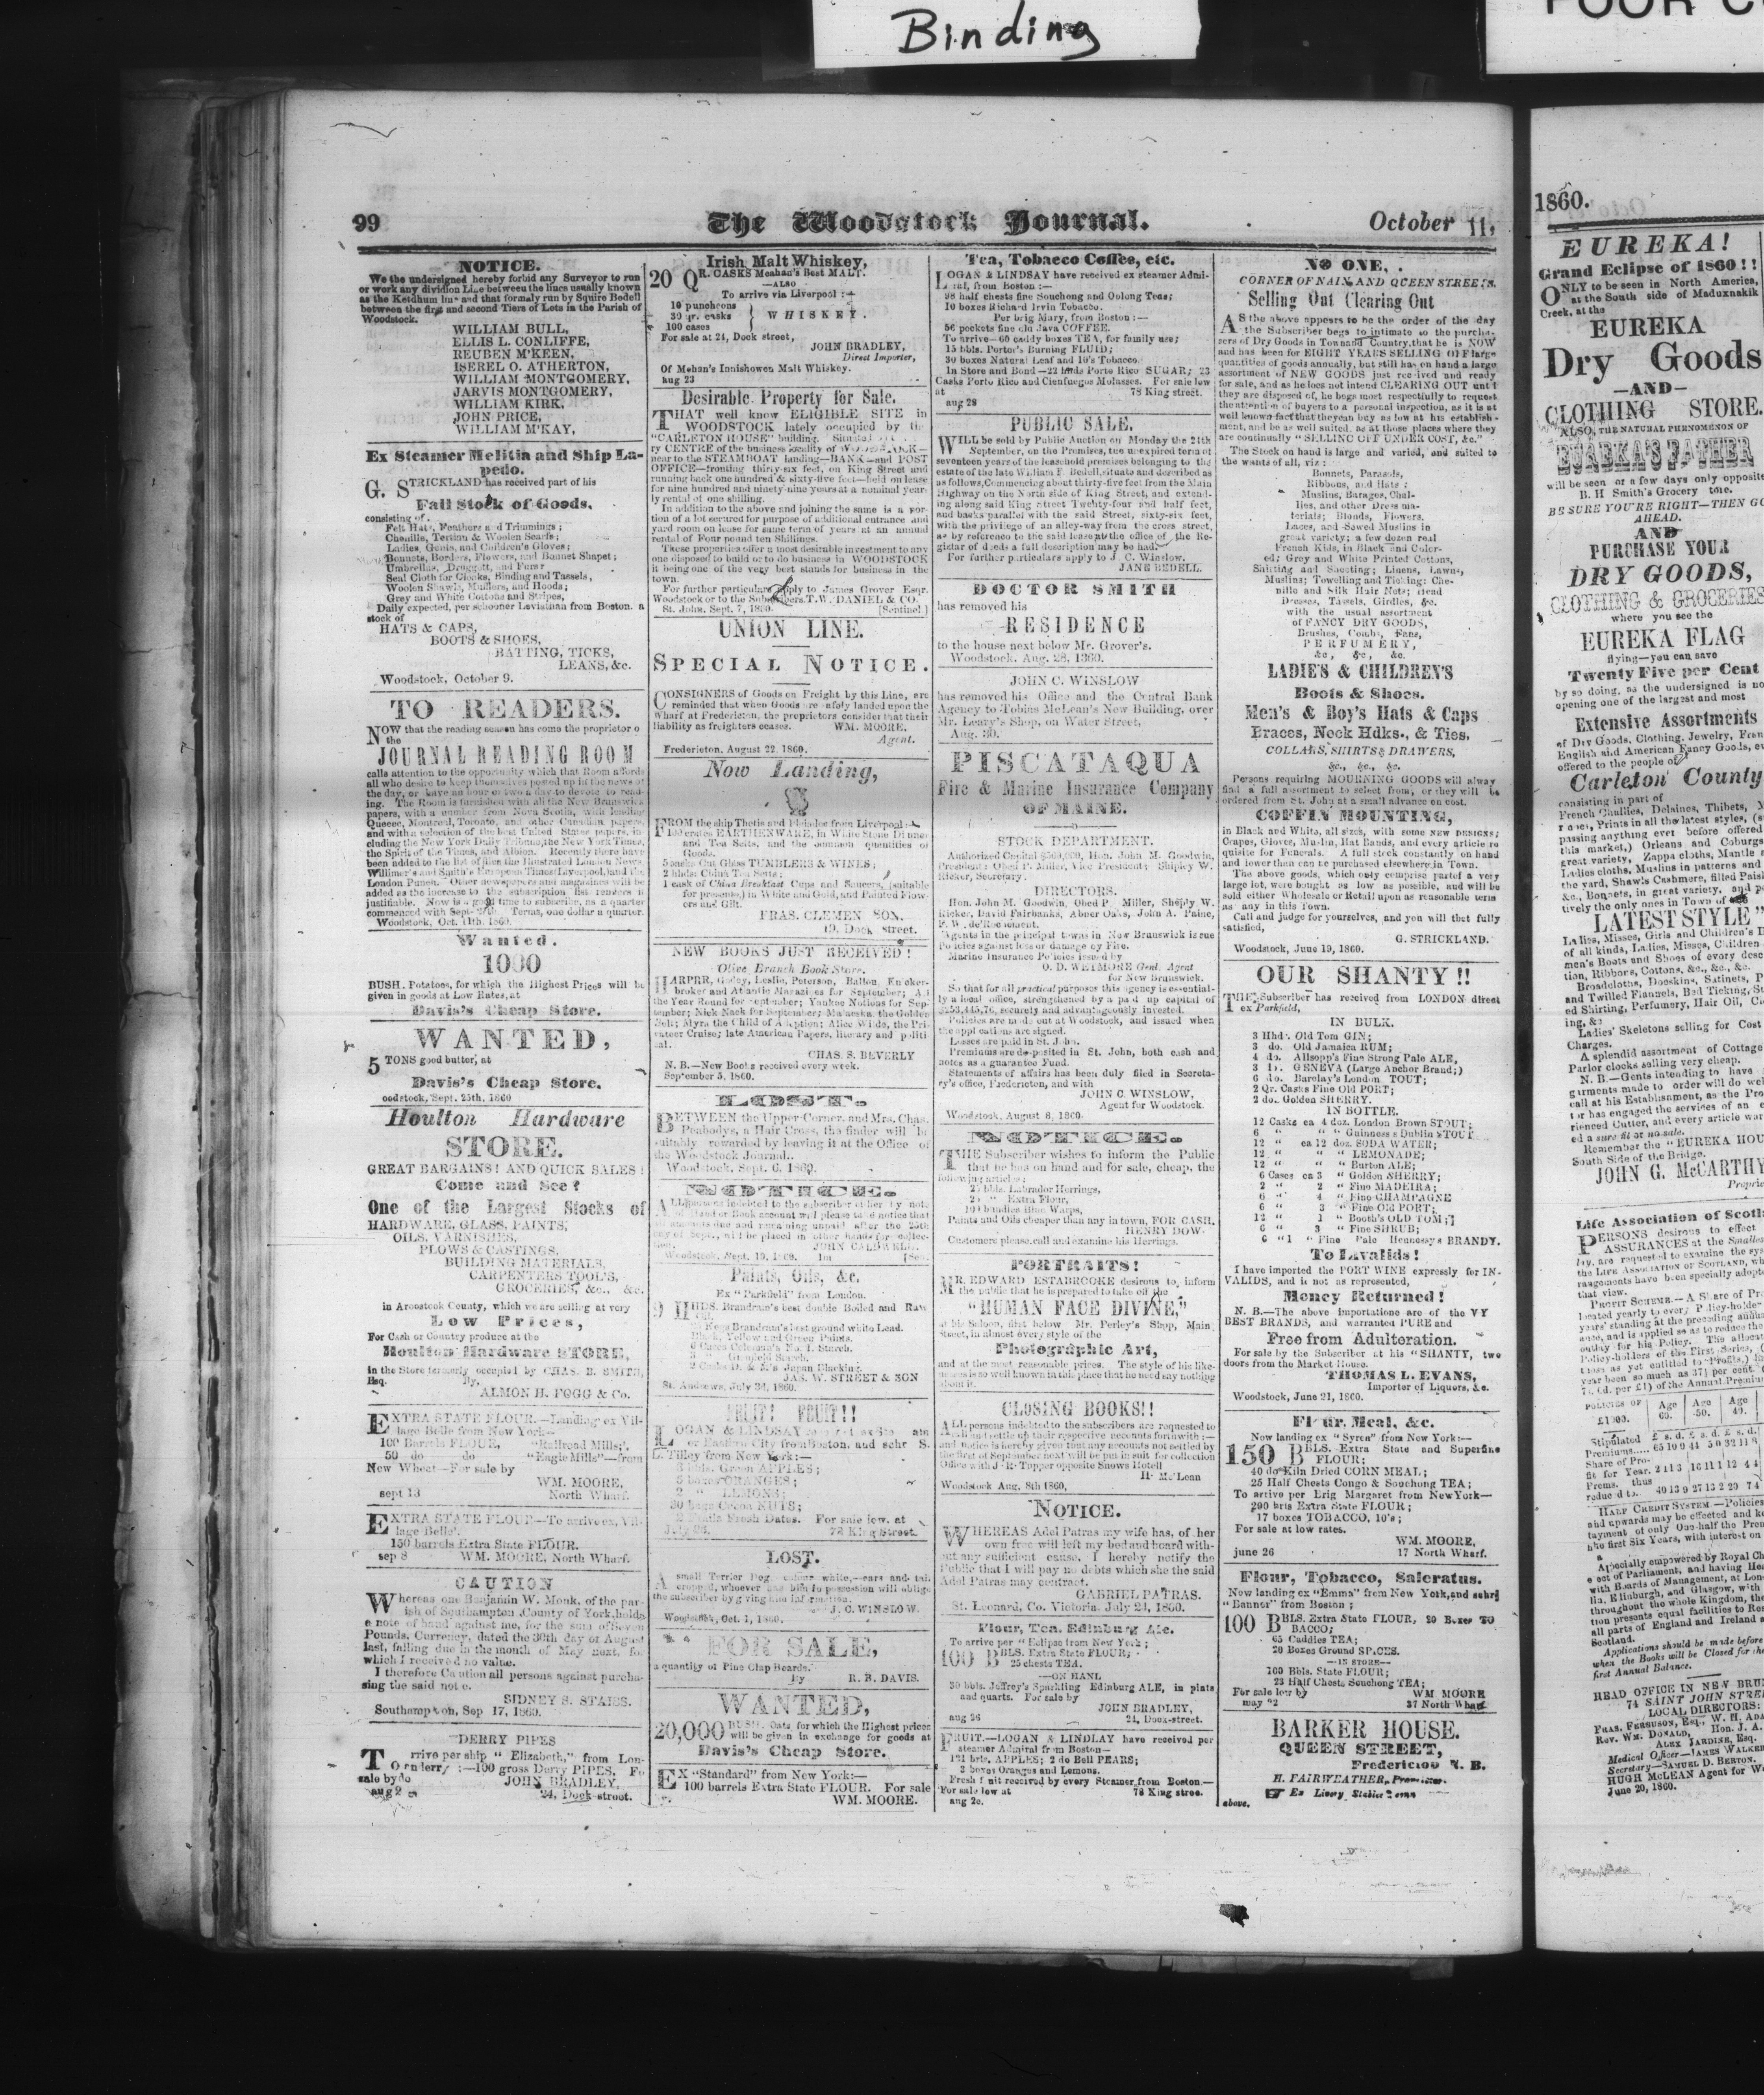 Binding
99
The Woodstock Journal.
October 11,
NOTICE.
We the undersigned hereby forbid any Surveyor to run
or work any division Line between the lines usually known
as the Ketchum line and that formaly run by Squire Bedell
between the first and second Tiers of Lots in the Parish of
Woodstock.
WILLIAM BULL,
ELLIS L. CONLIFFE,
REUBEN M'KEEN,
ISEREL O. ATHERTON,
WILLIAM MONTGOMERY,
JARVIS MONTGOMERY,
WILLIAM KIRK,
JOHN PRICE,
WILLIAM M'KAY,
Ex Steamer Melitia and Ship La-
pedo.
G. STRICKLAND has received part of his
Fall Stock of Goods,
consisting of
Felt Hats, Feathers and Trimmings;
Chenille, Tertian & Woolen Scarfs;
Ladies, Gents, and Children's Gloves;
Bonnets, Borders, Flowers, and Bonnet Shapet;
Umbrellas, Druggett, and Furs
Seal Cloth for Cloaks, Binding and Tassels,
Woolen Shawls, Mufflers, and Hoods;
Grey and White Cottons and Stripes,
Daily expected, per schooner Leviathan from Boston. a
stock of
HATS & CAPS,
BOOTS & SHOES,
BATTING, TICKS,
LEANS, &c.
Woodstock, October 9.
TO READERS.
NOW that the reading season has come the proprietor o
the
JOURNAL READING ROOM
calls attention to the opportunity which that Room affords
all who desire to keep themselves posted up in the news of
the day, or have an hour or two a day to devote to read-
ing. The Room is furnished with all the New Brunswick
papers, with a number from Nova Scotia, with leading
Quebec, Montreal, Toronto, and other Canadian papers,
and with a selection of the best United States papers, in
cluding the New York Daily Tribune, the New York Times,
the Spirit of the Times, and Albion. Recently there have
been added to the list of files the Illustrated London News
Willimer's and Smith's European Times Liverpool, and the
London Punch. Other newspapers and magazines will be
added as the increase to the subscription list renders it
justifiable. Now is a good time to subscribe, as a quarter
commenced with Sept. Terms, one dollar a quarter.
Woodstock, Oct. 11th. 1860
Wanted.
1000
BUSH. Potatoes, for which the Highest Prices will be
given in goods at Low Rates, at
Davis's Cheap Store.
WANTED,
5 TONS good butter, at
Davis's Cheap Store.
oodstock, Sept. 25th, 1860
Houlton Hardware
STORE.
GREAT BARGAINS! AND QUICK SALES!
Come and See!
One of the Largest Stocks of
HARDWARE, GLASS, PAINTS,
OILS, VARNISHES,
PLOWS & CASTINGS,
BUILDING MATERIALS,
CARPENTERS TOOL'S,
GROCERIES, &c., &c.
in Aroostook County, which we are selling at very
Low Prices,
For Cash or Country produce at the
Houlton Hardware STORE,
in the Store formerly occupied by CHAS. B. SMITH,
Esq. By,
ALMON H. FOGG & Co.
EXTRA STATE FLOUR.—Landing ex Vil-
lage Belle from New York—
100 Barrels FLOUR, "Railroad Mills;'
50 do do "Eagle Mills"—from
New Wheat—For sale by
WM. MOORE,
sept 13 North Wharf.
EXTRA STATE FLOUR—To arrive ex, Vil-
lage Belle'.
150 barrels Extra State FLOUR.
sep 8 WM. MOORE, North Wharf.
CAUTION
Whereas one Benjamin W. Monk, of the par-
ish of Southampton, County of York, holds
e note of hand against me, for the sum of Seven
Pounds, Currency, dated the 30th day of August
last, falling due in the month of May next, for
which I received no value.
I therefore Caution all persons against purcha-
sing the said note.
SIDNEY S. STAIRS.
Southampton, Sep 17, 1860.
DERRY PIPES
To arrive per ship "Elizabeth," from Lon-
donderry:—100 gross Derry PIPES, Fo
sale by JOHN BRADLEY,
aug 2 24, Dock-street.
Irish Malt Whiskey,
20 QR. CASKS Meahan's Best MALT.
—ALSO
To arrive via Liverpool:—
10 puncheons
30 qr. casks WHISKEY.
100 cases
For sale at 24, Dock street,
JOHN BRADLEY,
Direct Importer,
Of Mehan's Innishowen Malt Whiskey.
aug 23
Desirable Property for Sale.
THAT well know ELIGIBLE SITE in
WOODSTOCK lately occupied by the
"CARLETON HOUSE" building. Situated
ry CENTRE of the business locality of WOODSTOCK—
near to the STEAMBOAT landing—BANK—and POST
OFFICE—fronting thirty-six feet, on King Street and
running back one hundred & sixty-five feet—held on lease
for nine hundred and ninety-nine years at a nominal year-
ly rental of one shilling.
In addition to the above and joining the same is a por-
tion of a lot secured for purpose of additional entrance and
yard room on lease for same term of years at an annual
rental of Four pound ten Shillings.
These properties offer a most desirable investment to any
one disposed to build or to do business in WOODSTOCK
it being one of the very best stands for business in the
town.
For further particulars apply to James Grover Esqr.
Woodstock or to the Subscribers. T. W. DANIEL & CO.
St. Johns, Sept. 7, 1860. [Sentinel.]
UNION LINE.
SPECIAL NOTICE.
CONSIGNERS of Goods on Freight by this Line, are
reminded that when Goods are safely landed upon the
Wharf at Fredericton, the proprietors consider that their
liability as freighters ceases. WM. MOORE.
Agent.
Fredericton, August 22, 1860.
Now Landing,
FROM the ship Thetis and from Liverpool:—
100 crates EARTHENWARE, in White Stone Dinner
and Tea Setts, and the common quantities of
Goods.
5 casks Cut Glass TUMBLERS & WINES;
2 hhds China Tea Setts;
1 cask of China Breakfast Cups and Saucers, (suitable
for presents) in White and Gold, and Painted Flow-
ers and Gilt.
FRAS. CLEMENTSON.
19, Dock street.
NEW BOOKS JUST RECEIVED!
Olive Branch Book Store.
HARPER, Godey, Leslie, Peterson, Ballou, Knicker-
broker and Atlantic Magazines for September; All
the Year Round for September; Yankee Notions for Sep-
tember; Nick Nack for September; Malaeska, the Golden
Belt; Myra the Child of Adoption; Alice Wilde, the Pri-
vateer Cruise; late American Papers, literary and politi
cal.
CHAS. S. BEVERLY
N. B.—New Books received every week.
September 5, 1860.
LOST.
BETWEEN the Upper Corner, and Mrs. Chas.
Peabodys, a Hair Cross, the finder will be
suitably rewarded by leaving it at the Office of
the Woodstock Journal.
Woodstock, Sept. 6, 1860.
NOTICE.
ALL persons indebted to the subscriber either by note
of Hand or Book account will please take notice that
all amounts due and remaining unpaid after the 25th
day of Sept., will be placed in other hands for collec-
tion. JOHN CALDWELL.
Woodstock, Sept. 10, 1860. 1m
Paints, Oils, &c.
Ex "Parkfield" from London.
9 HHDS. Brandram's best double Boiled and Raw
Oil.
Kegs Brandram's best ground white Lead.
Black, Yellow and Green Paints.
6 Cases Coleman's No. 1. Starch.
Glenfield Starch.
2 Casks D. & M's Japan Blacking.
JAS. W. STREET & SON
St. Andrews, July 3d, 1860.
FRUIT! FRUIT!!
LOGAN & LINDSAY
or Eastern City from Boston, and schr S.
L. Tilley from New York:—
3 bbls. Green APPLES;
5 barr ORANGES;
2 " LEMONS;
30 bags Cocoa NUTS;
2 Frails Fresh Dates. For sale low, at
July 26. 78 King Street.
LOST.
A small Terrier Dog—colour white,—ears and tail
cropped, whoever has him in possession will oblige
the subscriber by giving him information.
J. C. WINSLOW.
Woodstock, Oct. 1, 1860.
FOR SALE,
a quantity of Pine Clap Boards.
By R. B. DAVIS.
WANTED,
20,000 BUSH. Oats, for which the Highest prices
will be given in exchange for goods at
Davis's Cheap Store.
EX "Standard" from New York:—
100 barrels Extra State FLOUR. For sale
WM. MOORE.
Tea, Tobacco Coffee, etc.
LOGAN & LINDSAY have received ex steamer Admi-
ral, from Boston:—
98 half chests fine Souchong and Oolong Teas;
10 boxes Richard Irvin Tobacco.
Per brig Mary, from Boston:—
56 pockets fine old Java COFFEE.
To arrive—60 caddy boxes TEA, for family use;
15 bbls. Porter's Burning FLUID;
30 boxes Natural Leaf and 10's Tobacco.
In Store and Bond—22 hhds Porto Rico SUGAR; 23
Casks Porto Rico and Cienfuegos Molasses. For sale low
at 78 King street.
aug 28
PUBLIC SALE.
WILL be sold by Public Auction on Monday the 24th
September, on the Premises, the unexpired term of
seventeen years of the leasehold premises belonging to the
estate of the late William F. Bedell, situate and described as
as follows, Commencing about thirty-five feet from the Main
Highway on the North side of King Street, and extend-
ing along said King street Twenty-four and half feet,
and backs parallel with the said Street, sixty-six feet,
with the privilege of an alley-way from the cross street,
as by reference to the said lease at the office of the Re-
gistar of deeds a full description may be had.
For further particulars apply to J. C. Winslow,
JANE BEDELL.
DOCTOR SMITH
has removed his
RESIDENCE
to the house next below Mr. Grover's.
Woodstock, Aug. 28, 1860.
JOHN C. WINSLOW
has removed his Office and the Central Bank
Agency to Tobias McLean's New Building, over
Mr. Leary's Shop, on Water Street,
Aug. 30.
PISCATAQUA
Fire & Marine Insurance Company
OF MAINE.
STOCK DEPARTMENT.
Authorized Capital $500,000, Hon. John M. Goodwin,
President; Obed P. Miller, Vice President; Shipley W.
Ricker, Secretary.
DIRECTORS.
Hon. John M. Goodwin, Obed P. Miller, Sheply W.
Ricker, David Fairbanks, Abner Oaks, John A. Paine,
F. W. de Rochmont.
Agents in the principal towns in New Brunswick issue
Policies against loss or damage by Fire.
Marine Insurance Policies issued by
O. D. WETMORE Genl. Agent
for New Brunswick.
So that for all practical purposes this agency is essential-
ly a local office, strengthened by a paid up capital of
$253,445,76, securely and advantageously invested.
Policies are made out at Woodstock, and issued when
the applications are signed.
Losses are paid in St. John.
Premiums are deposited in St. John, both cash and
notes as a guarantee Fund.
Statements of affairs has been duly filed in Secreta-
ry's office, Fredericton, and with
JOHN C. WINSLOW,
Agent for Woodstock.
Woodstock, August 8, 1860.
NOTICE.
THE Subscriber wishes to inform the Public
that he has on hand and for sale, cheap, the
following articles:
25 bbls. Labrador Herrings,
" Extra Flour,
100 bundles Blue Warps,
Paints and Oils cheaper than any in town, FOR CASH.
HENRY DOW.
Customers please call and examine his Herrings.
PORTRAITS!
MR. EDWARD ESTABROOKE desirous to inform
the public that he is prepared to take off the
"HUMAN FACE DIVINE,"
at his Saloon, first below Mr. Perley's Shop, Main
Street, in almost every style of the
Photographic Art,
and at the most reasonable prices. The style of his like-
nesses is so well known in this place that he need say nothing
about it.
CLOSING BOOKS!!
ALL persons indebted to the subscribers are requested to
call and settle up their respective accounts forthwith:—
and notice is hereby given that any accounts not settled by
the first of September next will be put in suit for collection
Office with J. R. Tupper opposite Snows Hotell
H. McLean
Woodstock Aug. 8th 1860,
NOTICE.
WHEREAS Adel Patras my wife has, of her
own free will left my bed and board with-
out any sufficient cause, I hereby notify the
Public that I will pay no debts which she the said
Adel Patras may contract.
GABRIEL PATRAS.
St. Leonard, Co. Victoria, July 24, 1860.
Flour, Tea, Edinburg Ale.
To arrive per "Eclipse from New York;
100 BBLS. Extra State FLOUR,
25 chests TEA.
—ON HAND
30 bbls. Jeffrey's Sparkling Edinburg ALE, in pints
and quarts. For sale by
JOHN BRADLEY,
aug 26 24, Dock-street.
FRUIT.—LOGAN & LINDLAY have received per
steamer Admiral from Boston—
121 brls. APPLES; 2 do Bell PEARS;
3 boxes Oranges and Lemons.
Fresh Fruit received by every Steamer from Boston.—
For sale low at 78 King stree.
aug 2c.
NO ONE,
CORNER OF MAIN AND QUEEN STREETS.
Selling Out Clearing Out
AS the above appears to be the order of the day
the Subscriber begs to intimate to the purcha-
sers of Dry Goods in Town and Country, that he is NOW
and has been for EIGHT YEARS SELLING OFF large
quantities of goods annually, but still has on hand a large
assortment of NEW GOODS just received and ready
for sale, and as he does not intend CLEARING OUT until
they are disposed of, he begs most respectfully to request
the attention of buyers to a personal inspection, as it is at
well known fact that they can buy as low at his establish-
ment, and be as well suited, as at those places where they
are continually "SELLING OFF UNDER COST, &c."
The Stock on hand is large and varied, and suited to
the wants of all, viz:
Bonnets, Parasols,
Ribbons, and Hats;
Muslins, Barages, Chal-
lies, and other Dress ma-
terials; Blonds, Flowers,
Laces, and Sewed Muslins in
great variety; a few dozen real
French Kids, in Black and Color-
ed; Grey and White Printed Cottons,
Shirting and Sheeting; Linens, Lawns,
Muslins; Towelling and Ticking; Che-
nille and Silk Hair Nets; Head
Dresses, Tassels, Girdles, &c.
with the usual assortment
of FANCY DRY GOODS,
Brushes, Combs, Fans,
PERFUMERY,
&c, &c, &c.
LADIE'S & CHILDREN'S
Boots & Shoes.
Men's & Boy's Hats & Caps
Braces, Neck Hdks., & Ties,
COLLARS, SHIRTS & DRAWERS,
&c., &c., &c.
Persons requiring MOURNING GOODS will alway
find a full assortment to select from, or they will be
ordered from St. John at a small advance on cost.
COFFIN MOUNTING,
in Black and White, all sizes, with some NEW DESIGNS;
Crapes, Gloves, Muslin, Hat Bands, and every article re
quisite for Funerals. A full stock constantly on hand
and lower than can be purchased elsewhere in Town.
The above goods, which only comprise part of a very
large lot, were bought as low as possible, and will be
sold either Wholesale or Retail upon as reasonable term
as any in this Town.
Call and judge for yourselves, and you will bet fully
satisfied,
G. STRICKLAND.
Woodstock, June 19, 1860.
OUR SHANTY!!
THE Subscriber has received from LONDON direct
ex Parkfield,
IN BULK.
3 Hhd. Old Tom GIN;
3 do. Old Jamaica RUM;
4 do. Allsopp's Fine Strong Pale ALE,
3 do. GENEVA (Large Anchor Brand;)
6 do. Barclay's London TOUT;
2 Qr. Casks Fine Old PORT;
2 do. Golden SHERRY.
IN BOTTLE.
12 Casks ea 4 doz. London Brown STOUT;
6 " " " Guinness s Dublin STOUT
12 " ea 12 doz. SODA WATER;
12 " " " LEMONADE;
12 " " " Burton ALE;
6 Cases ea 3 " Golden SHERRY;
2 " 2 " Fine MADEIRA;
6 " 4 " Fine CHAMPAGNE
6 " 3 " Fine Old PORT;
12 " 1 " Booth's OLD TOM;
6 " 3 " Fine SHRUB;
6 "1 " Fine Pale Hennessys BRANDY.
To Invalids!
I have imported the PORT WINE expressly for IN-
VALIDS, and is not as represented,
Money Returned!
N. B.—The above importations are of the VY
BEST BRANDS, and warranted PURE and
Free from Adulteration.
For sale by the Subscriber at his "SHANTY, two
doors from the Market House.
THOMAS L. EVANS,
Importer of Liquors, &c.
Woodstock, June 21, 1860.
Flour, Meal, &c.
Now landing ex "Syren" from New York:—
150 BBLS. Extra State and Superfine
FLOUR;
40 do Kiln Dried CORN MEAL;
25 Half Chests Congo & Souchong TEA;
To arrive per Brig Margaret from New York—
200 bris Extra State FLOUR;
17 boxes TOBACCO, 10's;
For sale at low rates.
WM. MOORE,
june 26 17 North Wharf.
Flour, Tobacco, Saleratus.
Now landing ex "Emma" from New York, and schr
"Banner" from Boston;
100 BBLS. Extra State FLOUR, 20 Boxes TO
BACCO;
65 Caddies TEA;
20 Boxes Ground SPICES.
—IN STORE—
100 Bbls. State FLOUR;
23 Half Chests Souchong TEA;
For sale low by WM MOORE
may 22 37 North Wharf
BARKER HOUSE.
QUEEN STREET,
Fredericton N. B.
H. FAIRWEATHER, Proprietor.
above.
1860.
EUREKA!
Grand Eclipse of 1860!!
ONLY to be seen in North America,
at the South side of Maduxnakik
Creek, at the
EUREKA
Dry Goods
—AND—
CLOTHING STORE.
ALSO, THE NATURAL PHENOMENON OF
EUREKA'S FATHER
will be seen or a few days only opposite
B. H Smith's Grocery tore.
BE SURE YOU'RE RIGHT—THEN GO
AHEAD.
AND
PURCHASE YOUR
DRY GOODS,
CLOTHING & GROCERIES
where you see the
EUREKA FLAG
flying—you can save
Twenty Five per Cent
by so doing, as the undersigned is no
opening one of the largest and most
Extensive Assortments
of Dry Goods, Clothing, Jewelry, Fran
English and American Fancy Goods, ev
offered to the people of
Carleton County
consisting in part of
French Challies, Delaines, Thibets, M
Prints in all the latest styles, (s
passing anything ever before offered
this market,) Orleans and Coburgs
great variety, Zappa cloths, Mantle
Ladies cloths, Muslins in patterns and
the yard, Shawls Cashmere, filled Paisl
&c., Bonnets, in great variety, and p
tively the only ones in Town of
LATEST STYLE"
Ladies, Misses, Girls and Children's B
of all kinds, Ladies, Misses, Children
men's Boots and Shoes of every desc
tion, Ribbons, Cottons, &c., &c., &c.
Broadcloths, Doeskins, Satinets, P
and Twilled Flannels, Bed Ticking, St
ed Shirting, Perfumery, Hair Oil, C
ing, &c
Ladies' Skeletons selling for Cost
Charges.
A splendid assortment of Cottage
Parlor clocks selling very cheap.
N. B.—Gents intending to have
garments made to order will do wel
call at his Establishment, as the Pro
tor has engaged the services of an e
rienced Cutter, and every article war
ed a sure fit or no sale.
Remember the "EUREKA HOU
South Side of the Bridge.
JOHN G. McCARTHY
Proprie
Life Association of Scotl
PERSONS desirous to effect
ASSURANCES at the Smalles
lay, are requested to examine the sys
the LIFE ASSOCIATION OF SCOTLAND, wh
rangements have been specially adopte
that view.
PROFIT SCHEME.—A Share of Pr
located yearly to every Policy-holder
years' standing at the preceding annual
ance, and is applied so as to reduce the
outlay for his Policy. The allocat
Policy-holders of the First Series, (
those as yet entitled to Profits,) h
year been so much as 37½ per cent. (
7s. 6d. per £1) of the Annual Premiu
POLICIES OF £1000. Age 60. Age 50. Age 40.
Stipulated £ s. d. £ s. d. £ s. d.
Premiums..... 65 10 9 44 5 0 32 11 8
Share of Pro-
fit for Year. 24 1 3 16 11 1 12 4 4
Prems. thus
reduced to. 40 13 9 27 13 2 20 7 4
HALF CREDIT SYSTEM.—Policies
and upwards may be effected and k
tayment of only One-half the Prem
the first Six Years, with interest on
Specially empowered by Royal Ch
e act of Parliament, and having He
with Boards of Management, at Lon
lla, Edinburgh, and Glasgow, with
throughout the whole Kingdom, the
tion presents equal facilities to Res
all parts of England and Ireland a
Scotland.
Applications should be made before
when the Books will be Closed for the
first Annual Balance.
HEAD OFFICE IN NEW BRU
74 SAINT JOHN STRE
LOCAL DIRECTORS:
FRAS. FERGUSON, Esq., W. H. ADA
Rev. WM. DONALD, Hon. J. A.
ALEX JARDINE, Esq.
Medical Officer—JAMES WALKER
Secretary—SAMUEL D. BERTON.
HUGH McLEAN Agent for W
June 20, 1860.